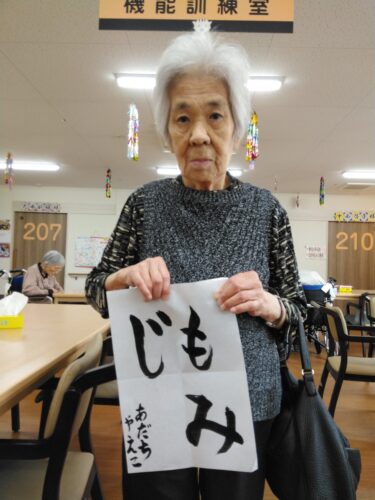 機能訓練室
207
210
もみ
じ
あだち
やえこ